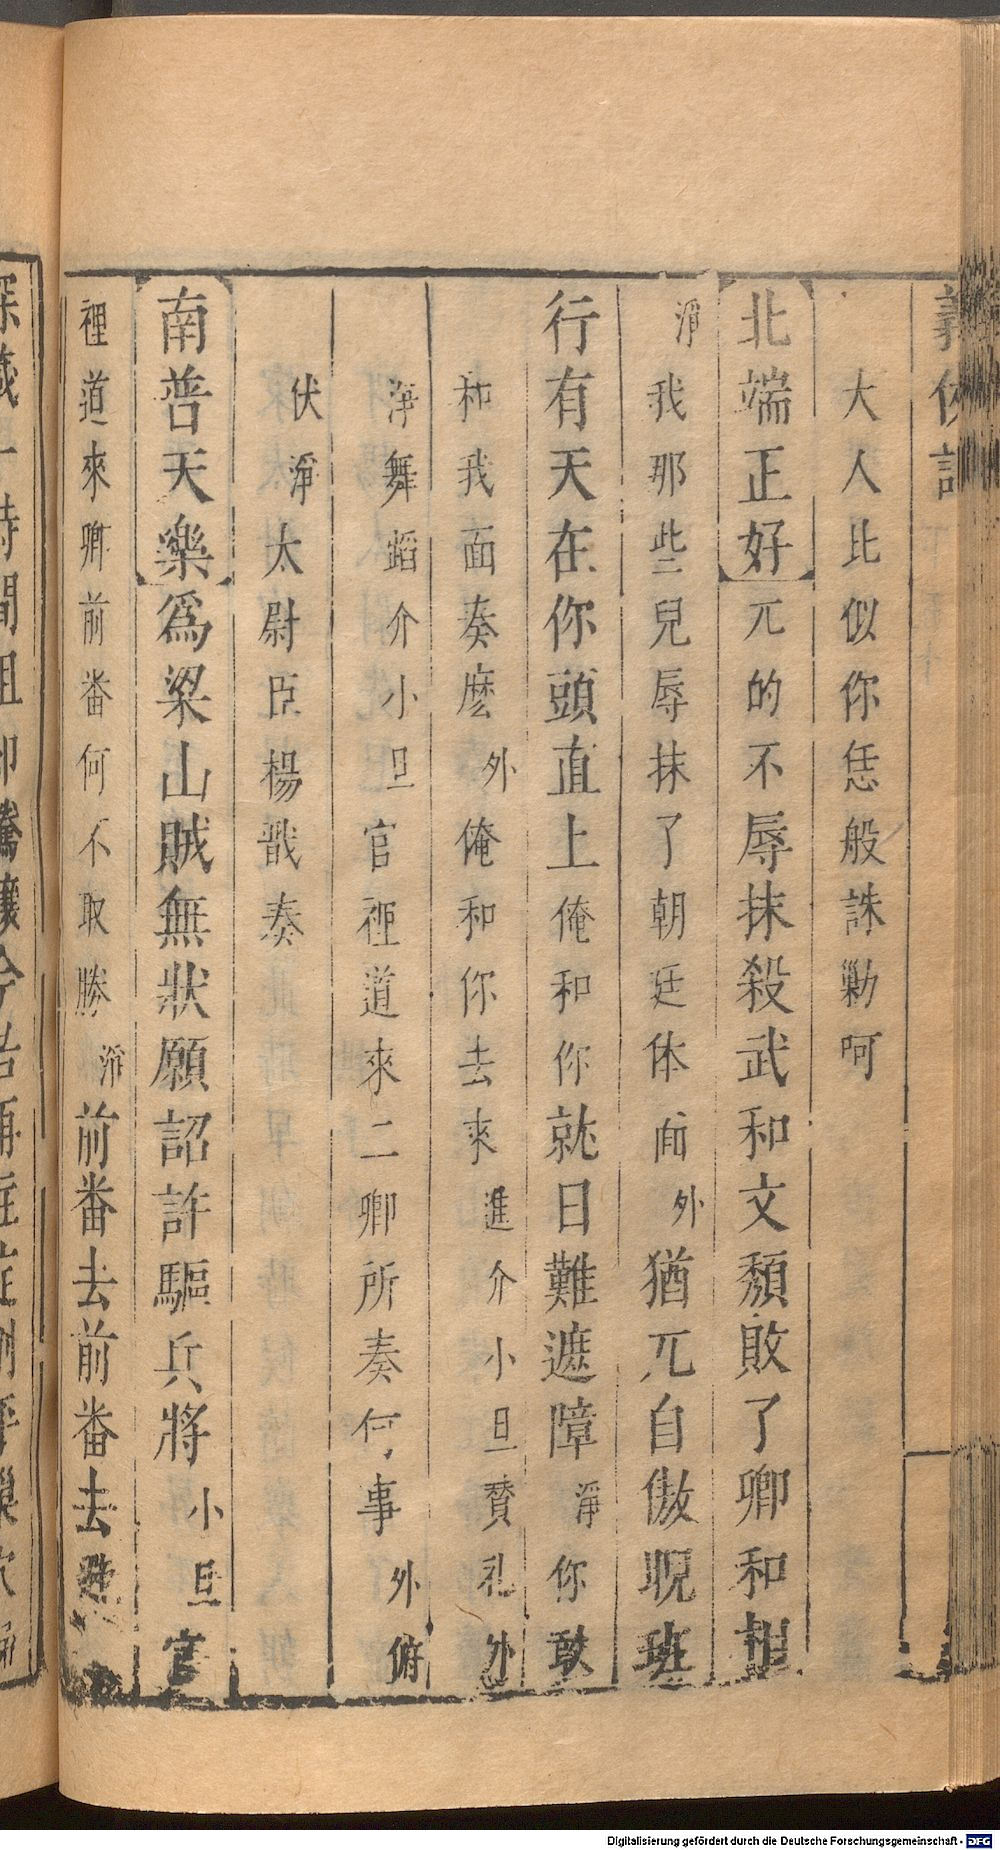 義俠記
大人比似你恁般誅勦呵
北端正好兀的不辱抹殺武和文頹敗了卿和相
淨我那些兒辱抹了朝廷体面外猶兀自傲睨班
行有天在你頭直上俺和你就日難遮障淨你敢
和我面奏麽外俺和你去來進介小旦贊礼外
淨舞蹈介小旦官裡道來二卿所奏何事外俯
伏淨太尉臣楊戩奏
南普天樂爲梁山賊無狀願詔許驅兵將小旦官
裡道來卿前番何不取勝淨前番去前番去
深 時間 今
Digitalisierung gefördert durch die Deutsche Forschungsgemeinschaft - DFG